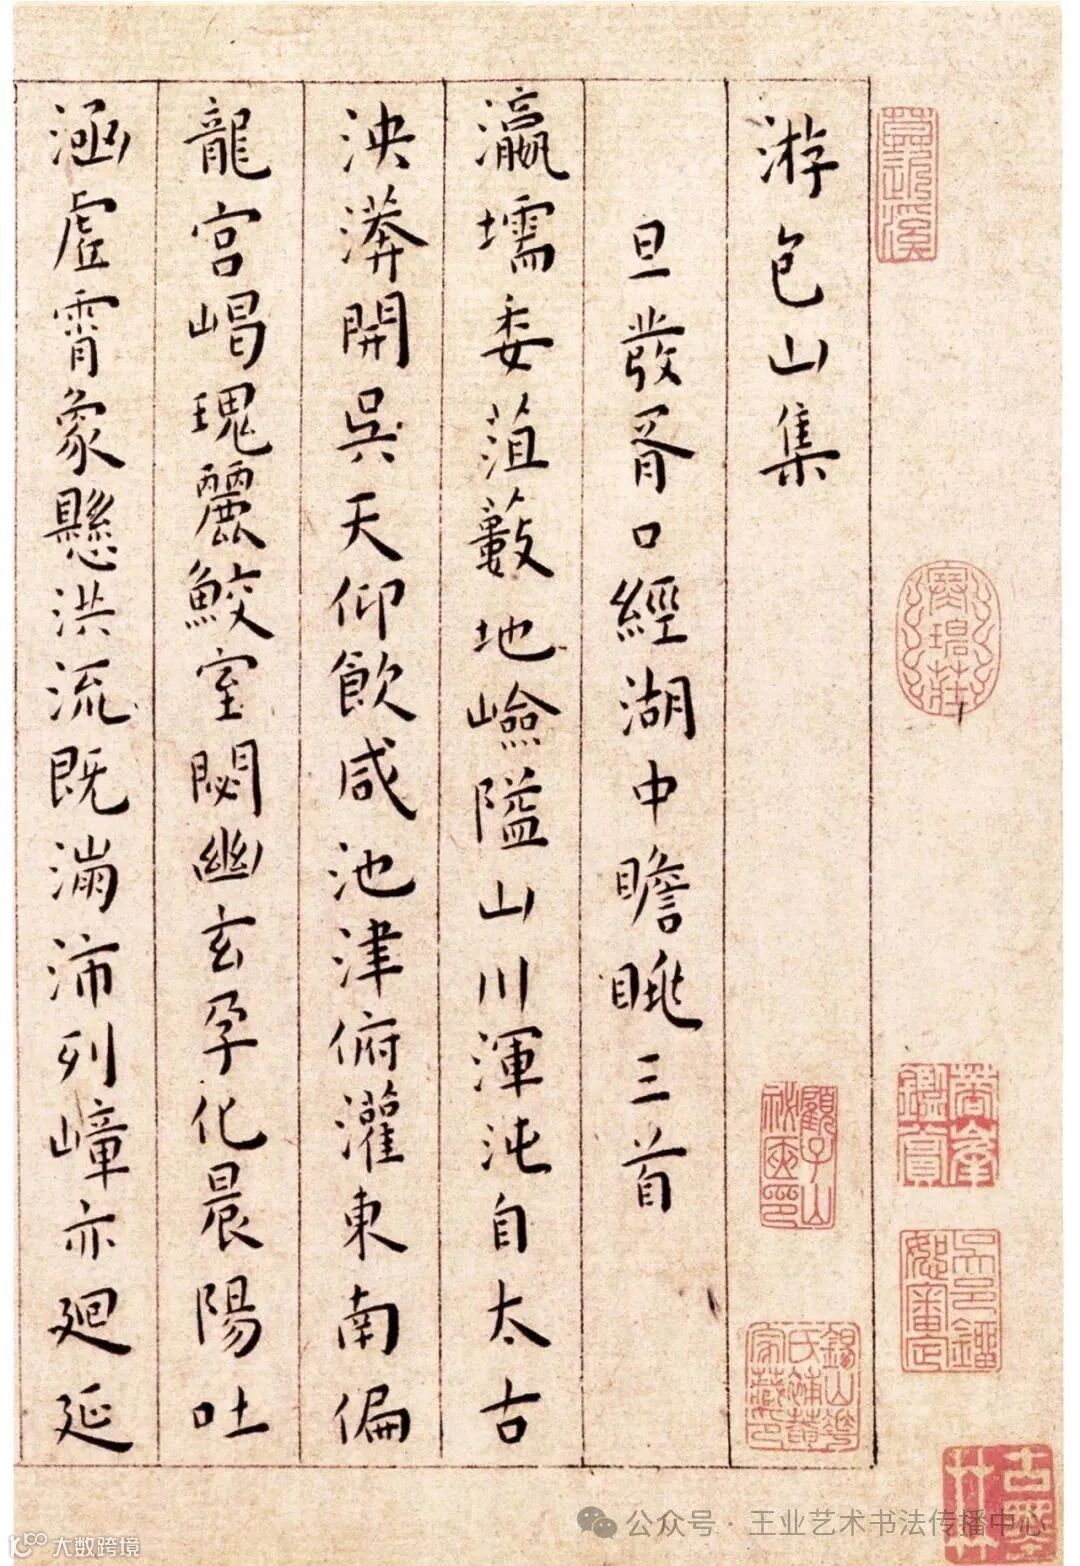 游包山集
旦發胥口經湖中瞻眺三首
瀛壖委菹藪地嶮隘山川渾沌自太古
泱漭開吳天仰飲咸池津俯灌東南偏
龍宮嵑瑰麗鮫室閟幽玄孕化晨陽吐
涵虛霄象懸洪流既滿沛列嶂亦迴延
顧子山秘匧印
公众号·王业艺术书法传播中心
大数跨境